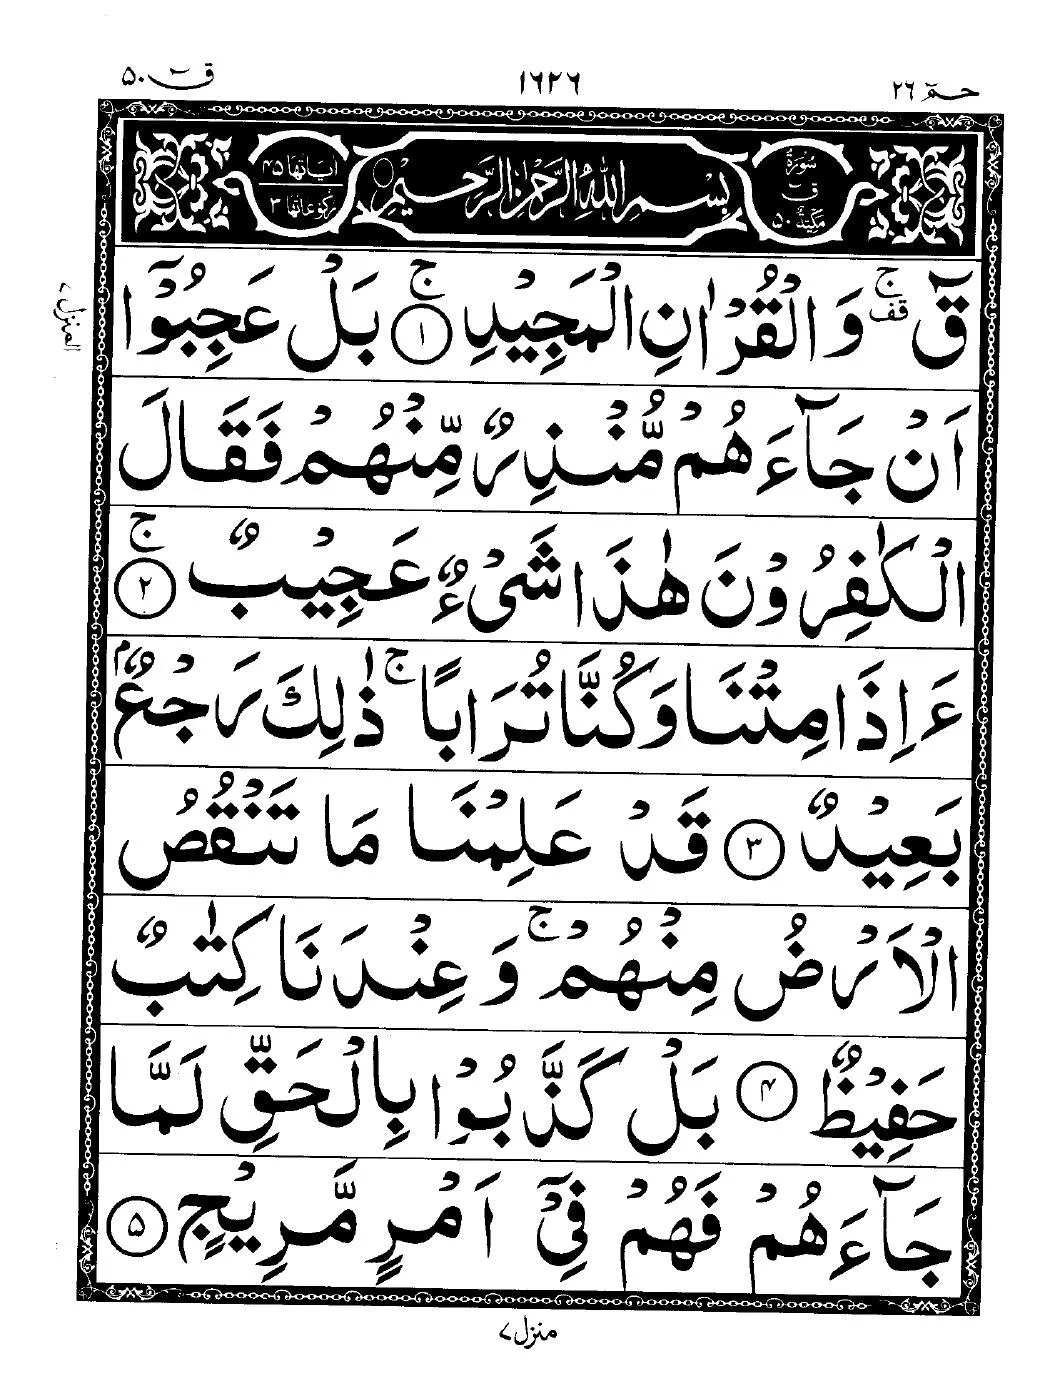 حٰمٓ ٢٦
١٦٢٦
قٓ ٥٠
سُوْرَةُ
قٓ
مَكِّيَّةٌ ٥٠
بِسْمِ اللّٰهِ الرَّحْمٰنِ الرَّحِيْمِ
اٰيَاتُهَا ٤٥
رُكُوْعَاتُهَا ٣
المنزل ٧
قٓ ۚ قف وَالْقُرْاٰنِ الْمَجِيْدِ ۚ ١ بَلْ عَجِبُوْٓا
اَنْ جَآءَهُمْ مُّنْذِرٌ مِّنْهُمْ فَقَالَ
الْكٰفِرُوْنَ هٰذَا شَىْءٌ عَجِيْبٌ ۚ ٢
ءَاِذَا مِتْنَا وَكُنَّا تُرَابًا ۚ ذٰلِكَ رَجْعٌۢ
بَعِيْدٌ ٣ قَدْ عَلِمْنَا مَا تَنْقُصُ
الْاَرْضُ مِنْهُمْ ۚ وَعِنْدَنَا كِتٰبٌ
حَفِيْظٌ ٤ بَلْ كَذَّبُوْا بِالْحَقِّ لَمَّا
جَآءَهُمْ فَهُمْ فِىْٓ اَمْرٍ مَّرِيْجٍ ٥
منزل ٧